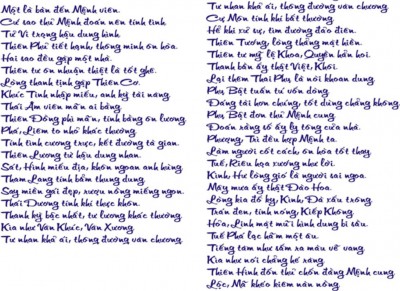 Một là bàn đến Mệnh viên.
Cứ sao thủ Mệnh đoán nên tính tình.
Tử Vi trọng hậu dung hình.
Thiên Phủ tiết hạnh, thông minh ôn hòa.
Hai sao đều gặp một nhà.
Thiên tư ôn nhuận thiệt là tốt ghê.
Lòng thanh tịnh gặp Thiên Cơ.
Khúc Tinh nhập miếu, anh kỳ tài năng.
Thái Âm viên mãn ai bằng.
Thiên Đồng phì mãn, tính bằng ôn lương.
Phá, Liêm to nhỏ khác thường.
Tính tình cương trực, kết đường tà gian.
Thiên Lương tử hậu dung nhan.
Sát, Hình miếu địa, khôn ngoan anh hùng.
Tham Lang tính bẩm thung dung.
Say miền gái đẹp, rượu nồng miếng ngon.
Thái Dương tính khí thực khôn.
Thanh kỳ bậc nhất, tư lương khác thường.
Kìa như Văn Khúc, Văn Xương.
Tư nhan khả ái, thông đường văn chương.
Tư nhan khả ái, thông đường văn chương.
Cự Môn tính khí bất thường.
Hễ khi xử sự, tìm đường đảo điên.
Thiên Tướng, lòng thẳng mặt hiền.
Thiên tư mỹ lệ Khoa, Quyền hẳn hoi.
Thanh bần ấy thật Việt, Khôi.
Lại thêm Thai Phụ là nòi khoan dung.
Phụ Bật tuấn tú vốn dòng.
Đáng tài hơn chúng, tốt dùng chẳng không.
Phụ Bật đơn thủ Mệnh cung.
Đoan rằng số ấy ly tông cửa nhà.
Phượng, Trì đều hợp Mệnh ta.
Làm người cốt cách, ôn hòa tốt thay.
Tuế, Riêu hựa xướng như lời.
Kình Hư lông giỏ là người sai ngoa.
Mấy mưa ấy thật Đào Hoa.
Lòng kia đố kỵ, Kình, Đà xấu trong.
Trán đen, tính nóng, Kiếp Không.
Hỏa, Linh mặt mũi hình dung bi sầu.
Tuế Phá lạc hãm mặt âu.
Tiếng tăm như sấm ra màu vẻ vang.
Kìa như nói chẳng hé răng.
Thiên Hình đơn thủ chốn đằng Mệnh cung.
Lộc, Mã khéo kiếm nên nồng.